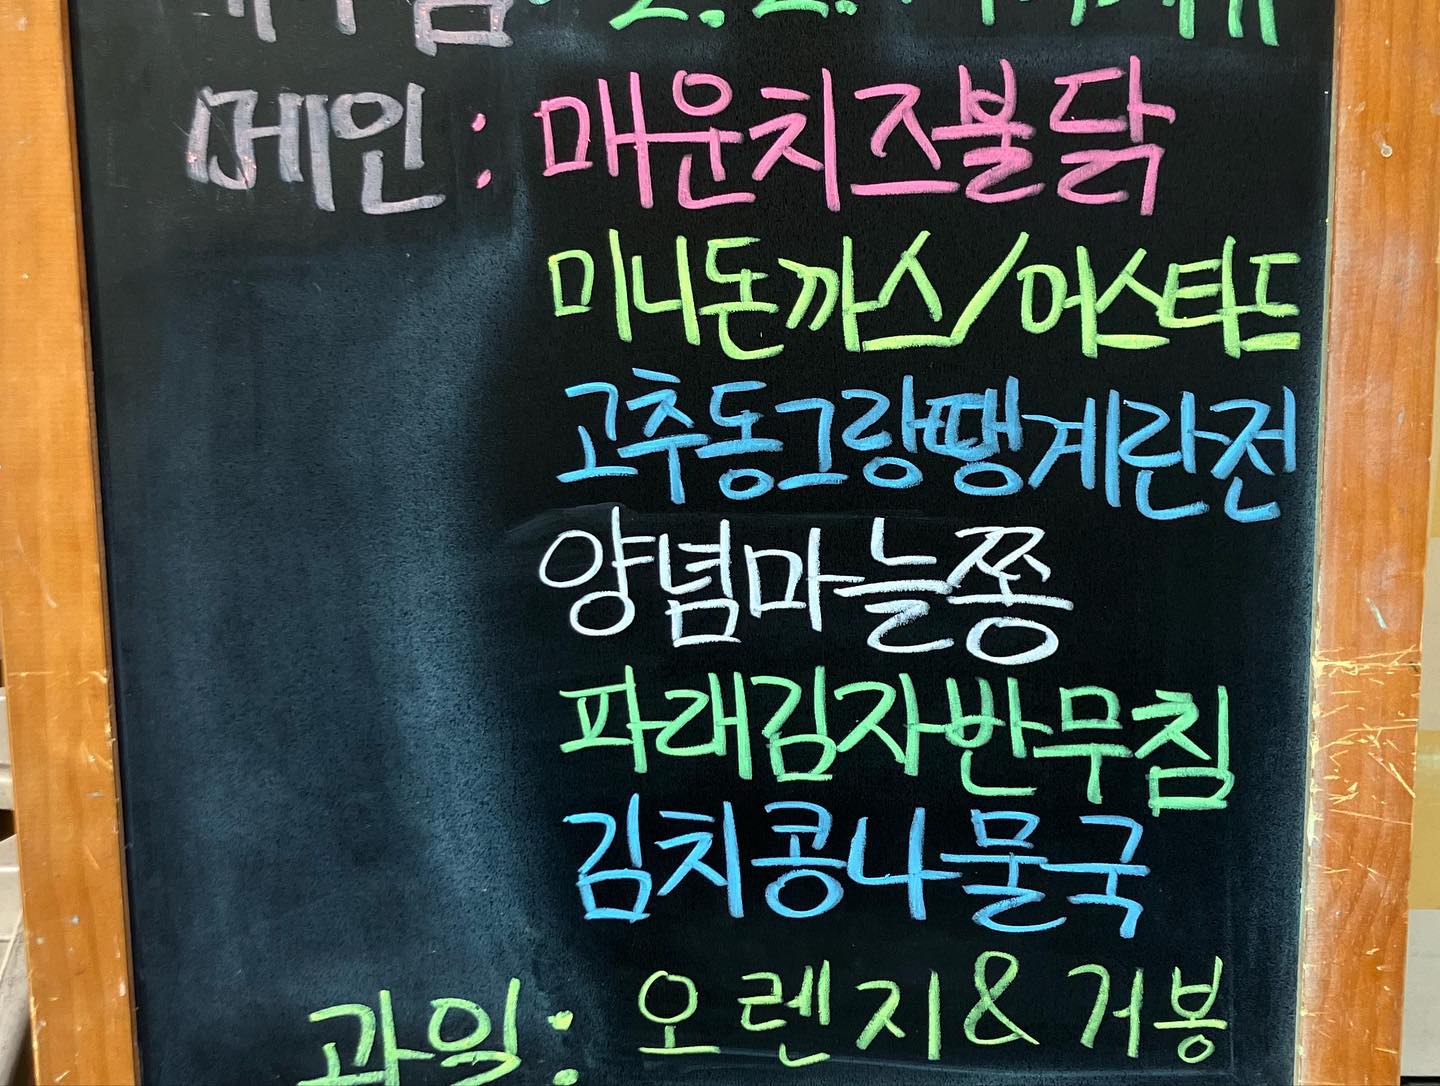 메인 : 매운치즈불닭
미니돈까스/머스타드
고추동그랑땡계란전
양념마늘쫑
파래김자반무침
김치콩나물국
과일 : 오렌지 & 거봉